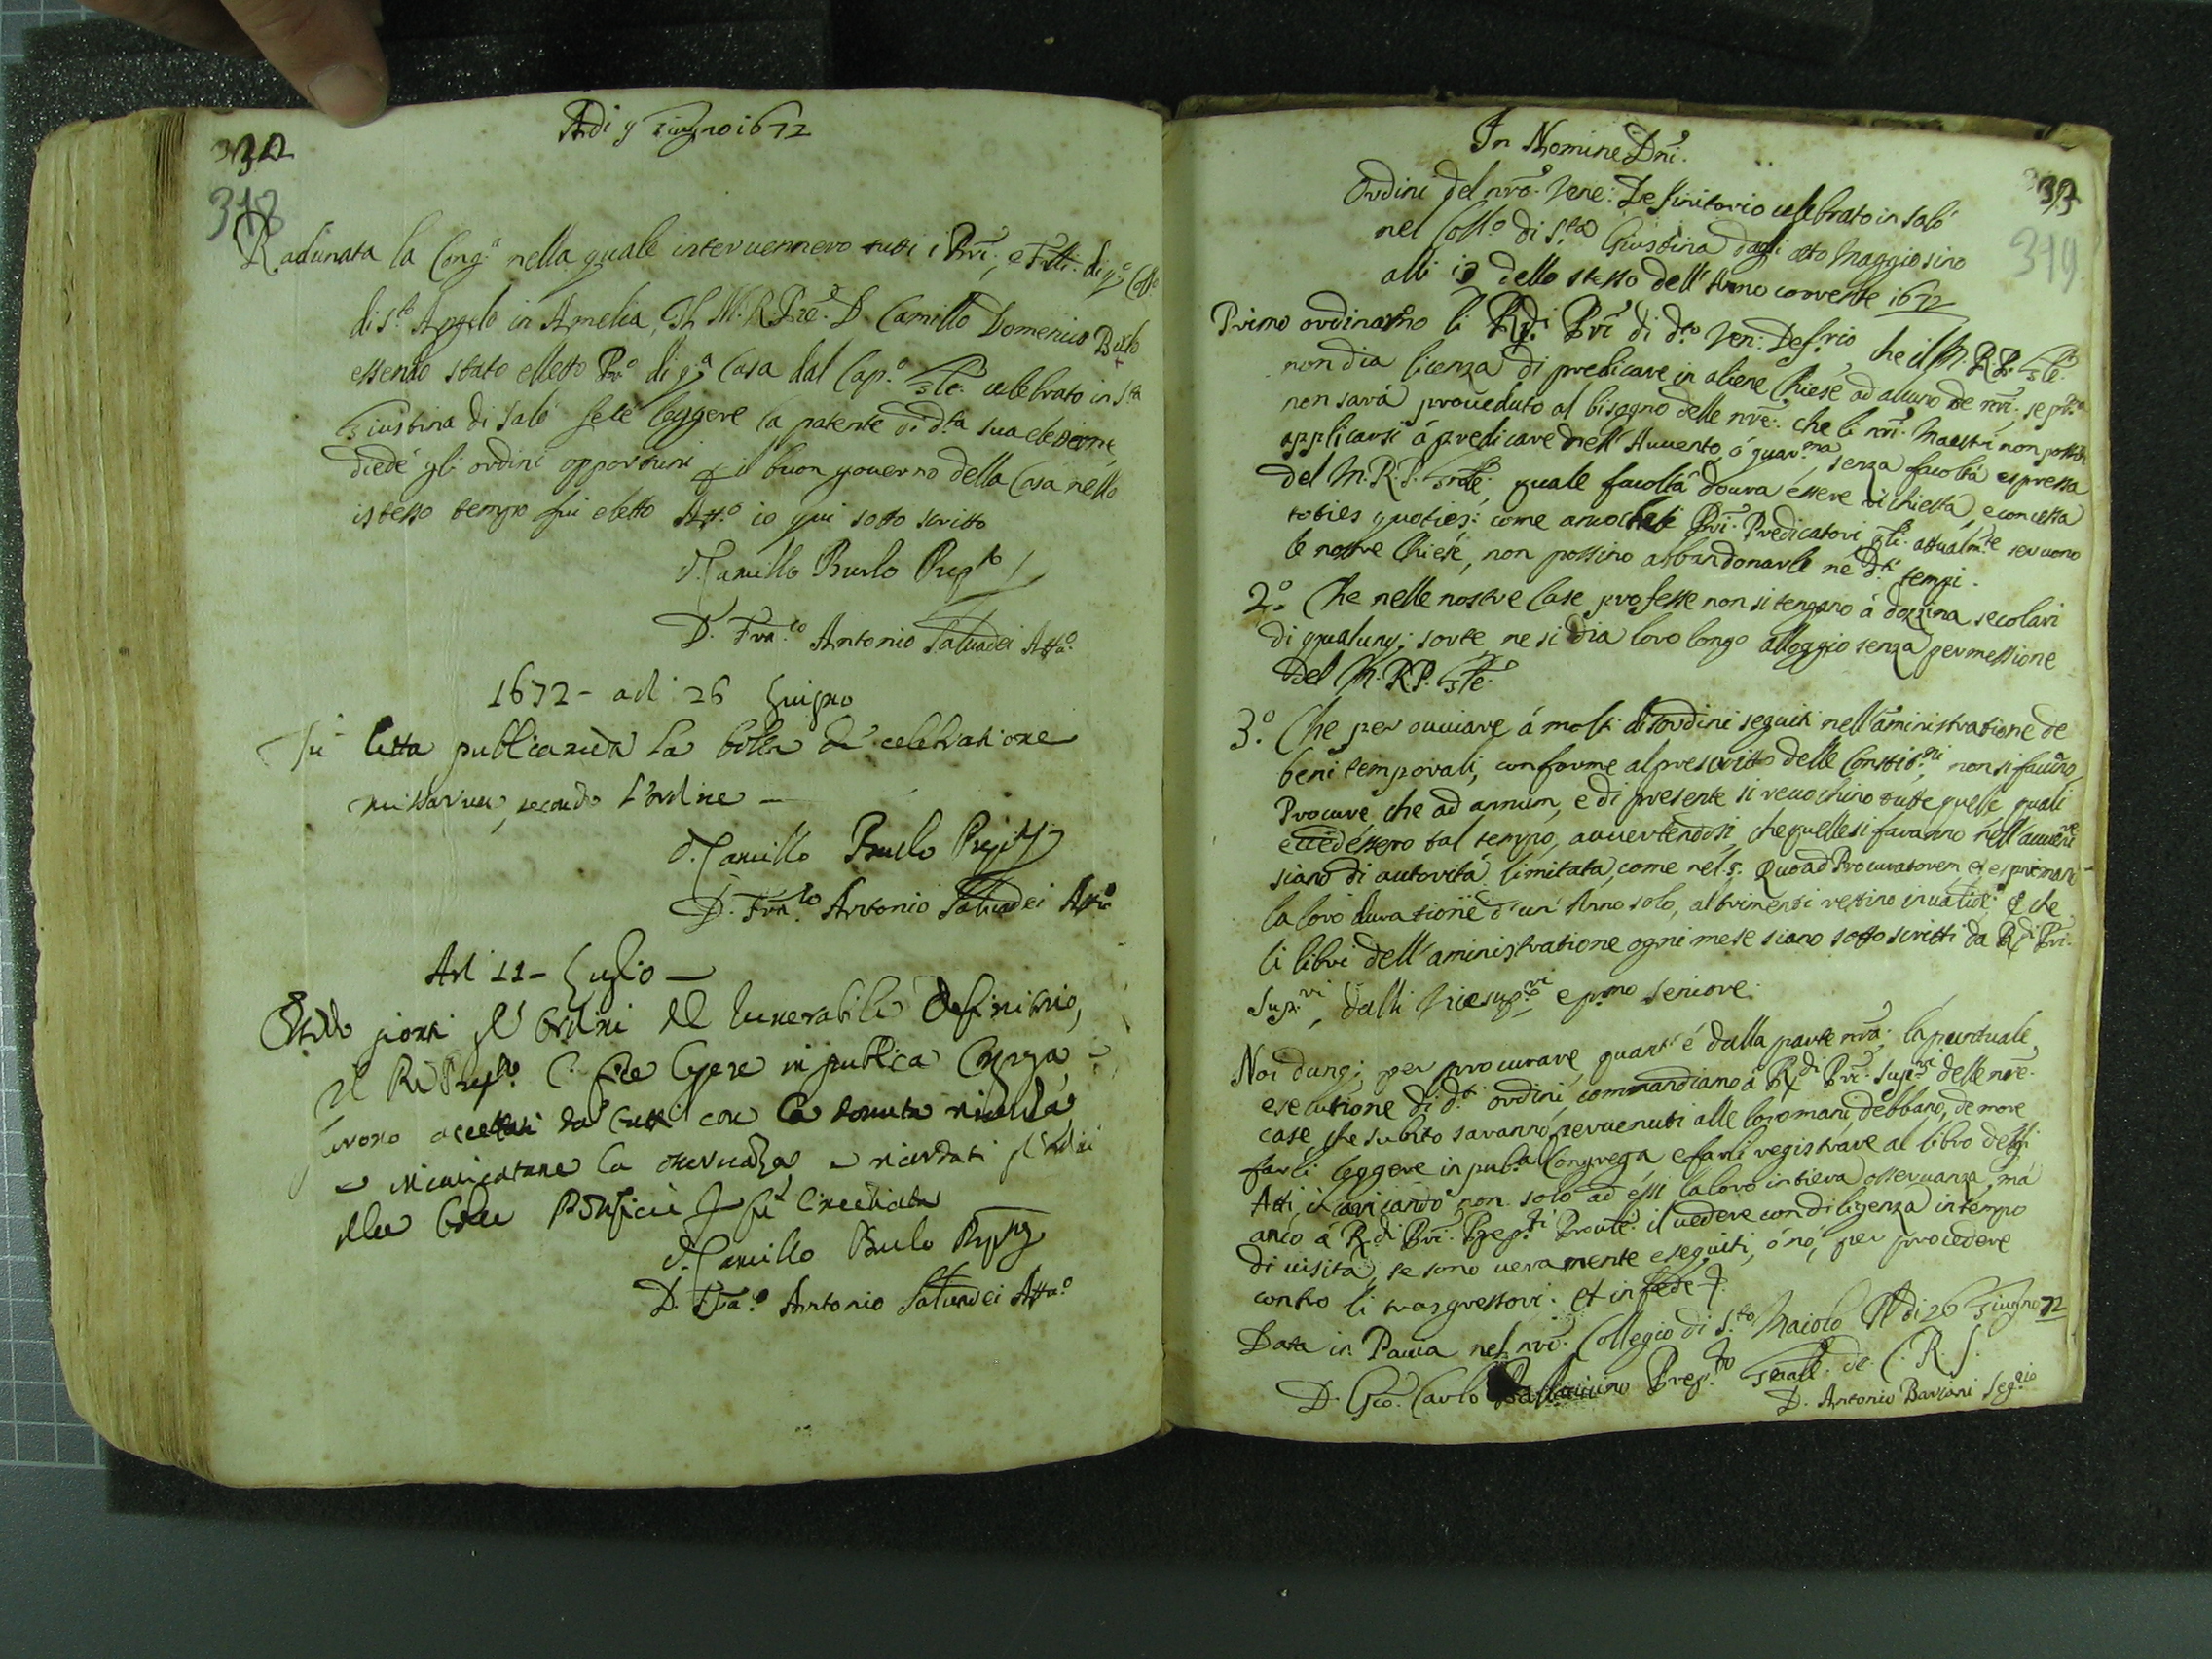 Adi 9 Giugno 1672
318
Radunata la Cong.a nella quale intervennero tutti i Pri:, e Flli: di q.o Coll.o
di S.to Angelo in Amelia, Il M. R. Pre. D. Camillo Domenico Burlo
essendo stato elletto Pr.o di q.a Casa dal Cap.o Gle: celebrato in S.ta
Giustina di Salò fece leggere la patente di d.ta sua elezione,
diede gli ordini opportuni p il buon governo della Casa nello
istesso tempo fui eletto Att.o io qui sotto scritto
D. Camillo Burlo Prep.to
D. Fran.co Antonio Salvadei Att.o
1672 - adi 26 Giugno
Fù letta publicam.te la bolla de celebratione
missarum, secondo l'ordine -
D. Camillo Burlo Prep.to
D. Fran.co Antonio Salvadei Att.o
Adi 11 - Luglio -
gionti gl'ordini del venerabile Definitorio,
Il R. Prep.to li fece legere in publica Congrega,
furono accettati da tutti con la dovuta
e incaricatane la osservanza e ricordati gl'ordini
delle Bolle Pontificie
D. Camillo Burlo Prep.to
D. Fran.co Antonio Salvadei Att.o
In Nomine Dni.
319
Ordini del nrõ. Vene: Definitorio celebrato in Salò
nel Coll.o di S.ta Giustina dagli otto Maggio sino
alli 13 dello stesso dell'Anno corrente 1672
Primo ordinarno li R.di Pri di d.to Ven: Def.rio, che il M. R. P. Gle.
non dia licenza di predicare in aliene Chiese ad alcuno de nri:, se pr.a
non sarà proveduto al bisogno delle nre: che li nri: Maestri non possin
applicarsi à predicare nell'Avvento, ó quar.ma, senza facoltà espressa
del M. R. P. Gnle: quale facoltà dovrà essere richiesta, e concessa
toties quoties: come anco che li Pri. Predicatori, qli: attualm.te servono
le nostre Chiese, non possino abbandonarle ne d.ti tempi.
2.o Che nelle nostre Case professe non si tengano á dozzina secolari
di qualunq; sorte, ne si dia loro longo alloggio senza permessione
del M. R. P. Gle.
3.o Che per ovviare á molti disordini seguiti nell'aministratione de
beni temporali, conforme al prescritto delle Constit.ni non si faccino
Procure che ad annum, e di presente si revochino tutte quelle quali
eccedessero tal tempo, avvertendosi, che quelle si faranno nell'avvenire
siano di autorità limitata, come nel §. Quoad Procuratorem, et esprimano
la loro duratione d'un Anno solo, altrimenti restino invalide: E che
li libri dell'aministratione ogni mese siano sotto scritti da R.di Pri.
Sup.ri, dalli Vicesup.ri e p.mo seniore.
Noi dunq; per procurare, quant'é dalla parte nra; la puntuale
esecutione di d.ti ordini, commandiamo á R.di Pri: Sup.ri delle nre:
case che subito saranno pervenuti alle loro mani, debbano, de more
farli leggere in pub.a Congrega e farli registrare al libro degli
Atti, incaricando non solo ad essi la loro intiera osservanza, má
anco á R.di Pri: Prep.ti Prouli: il vedere con diligenza in tempo
di visita, se sono veramente eseguiti, ó nó, per procedere
contro li trasgressori: et in fede
Data in Pavia nel nro: Collegio di S.to Maiolo Il di 26 Giugno 72
D. Gio: Carlo Pallavicino Prep.to Gnale: de C. R. S.
D. Antonio Barzani Seg.rio